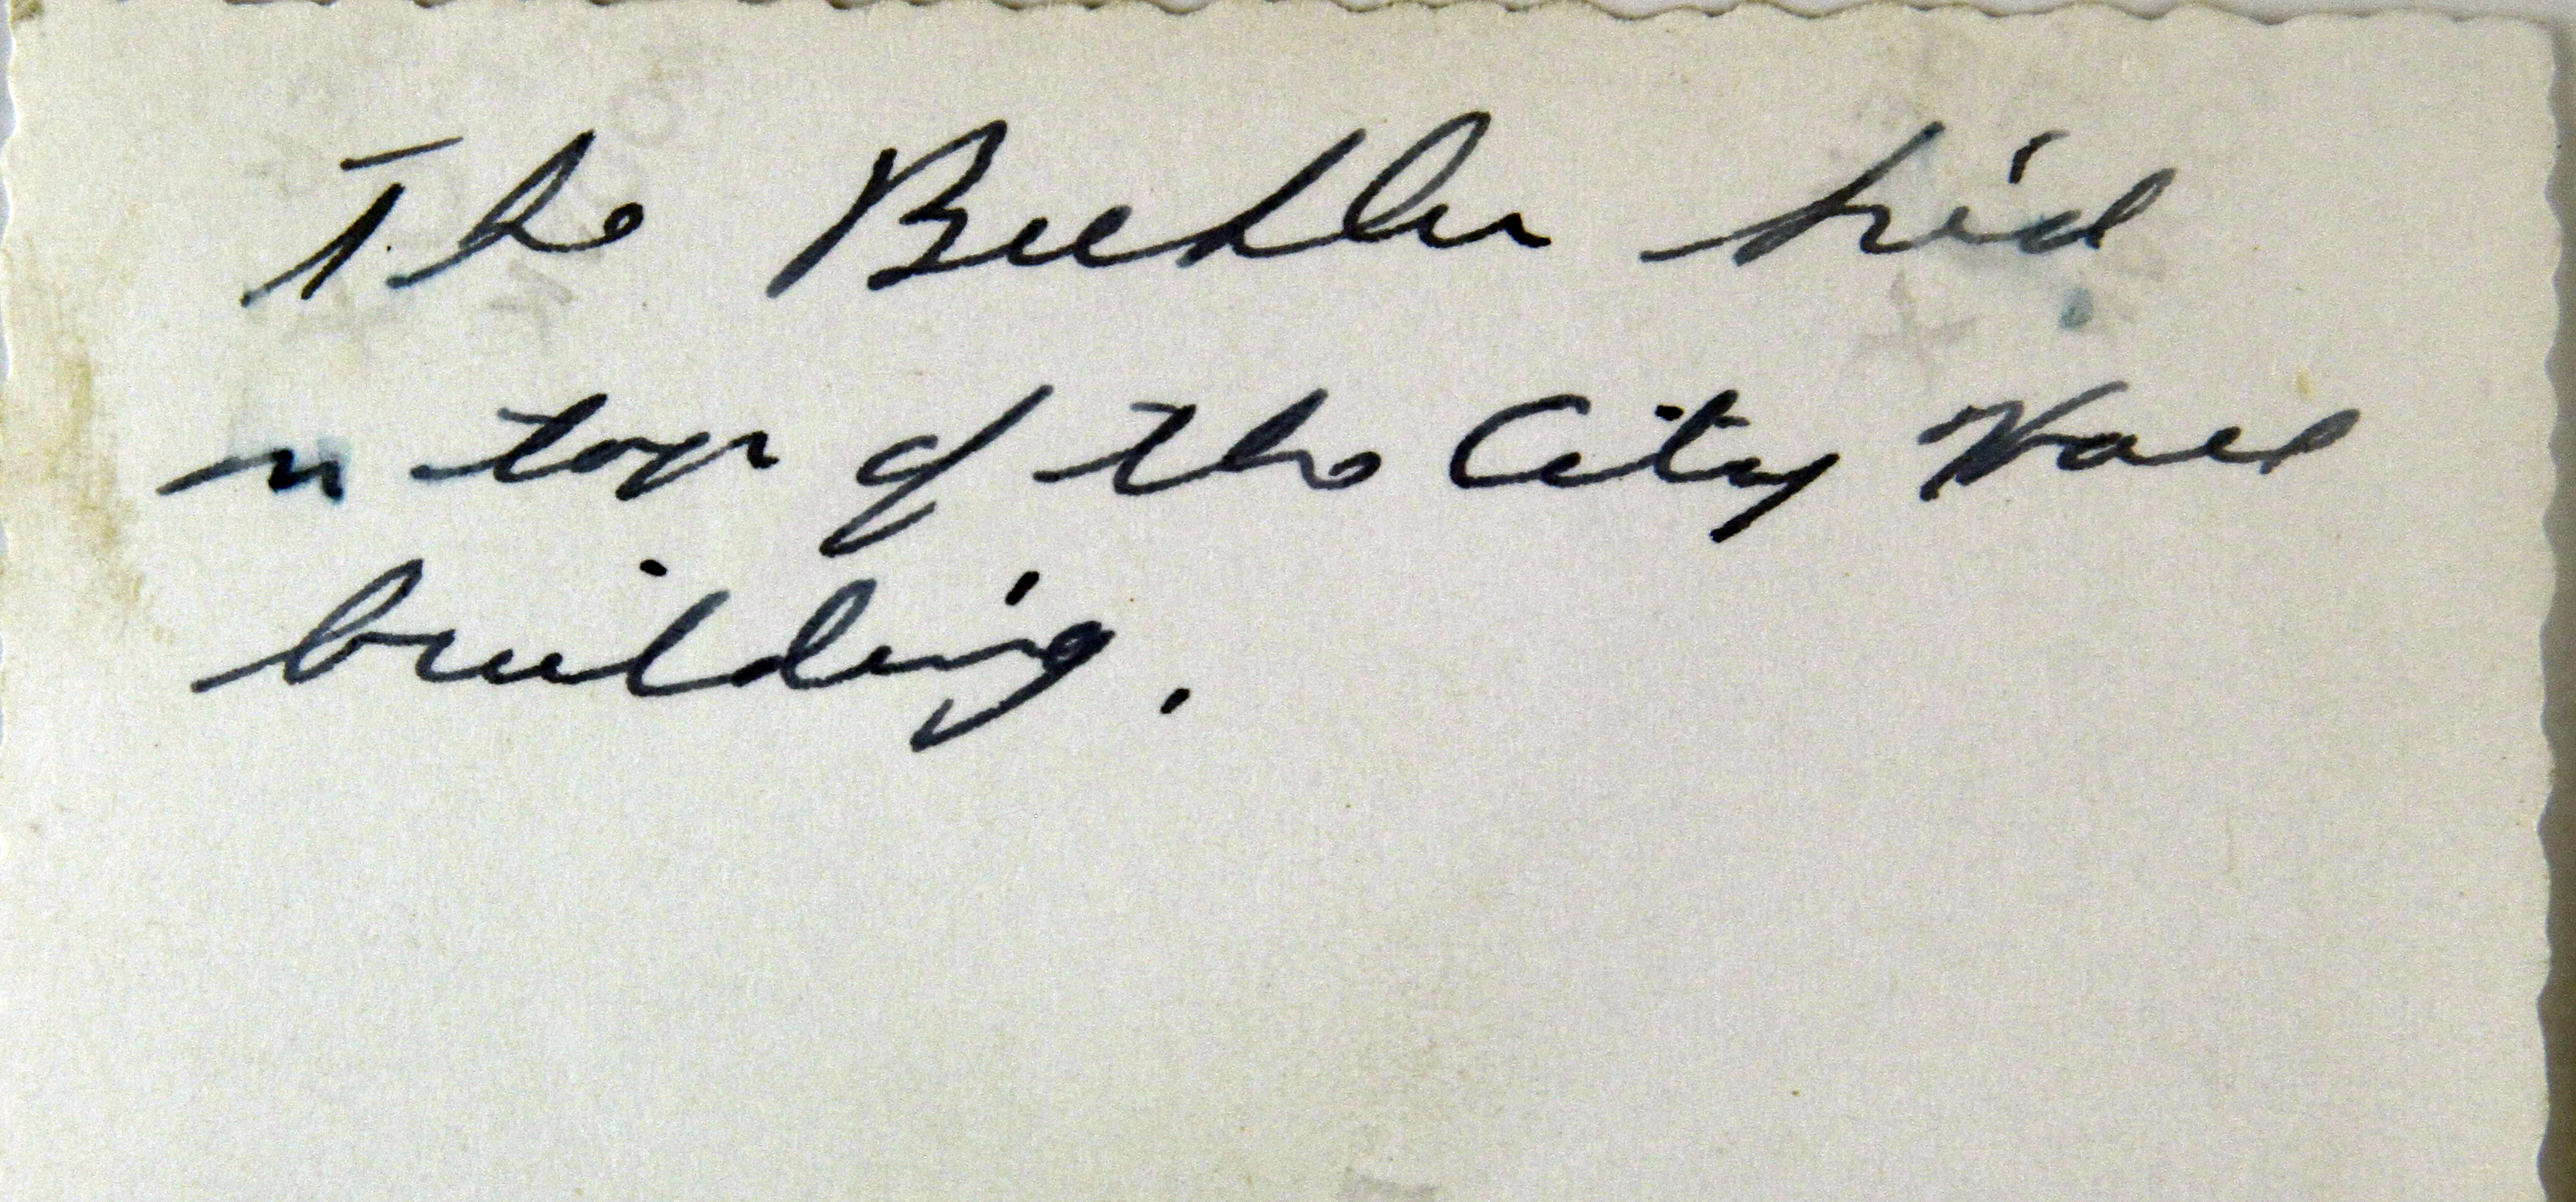 The
on top of the City Hall
building.